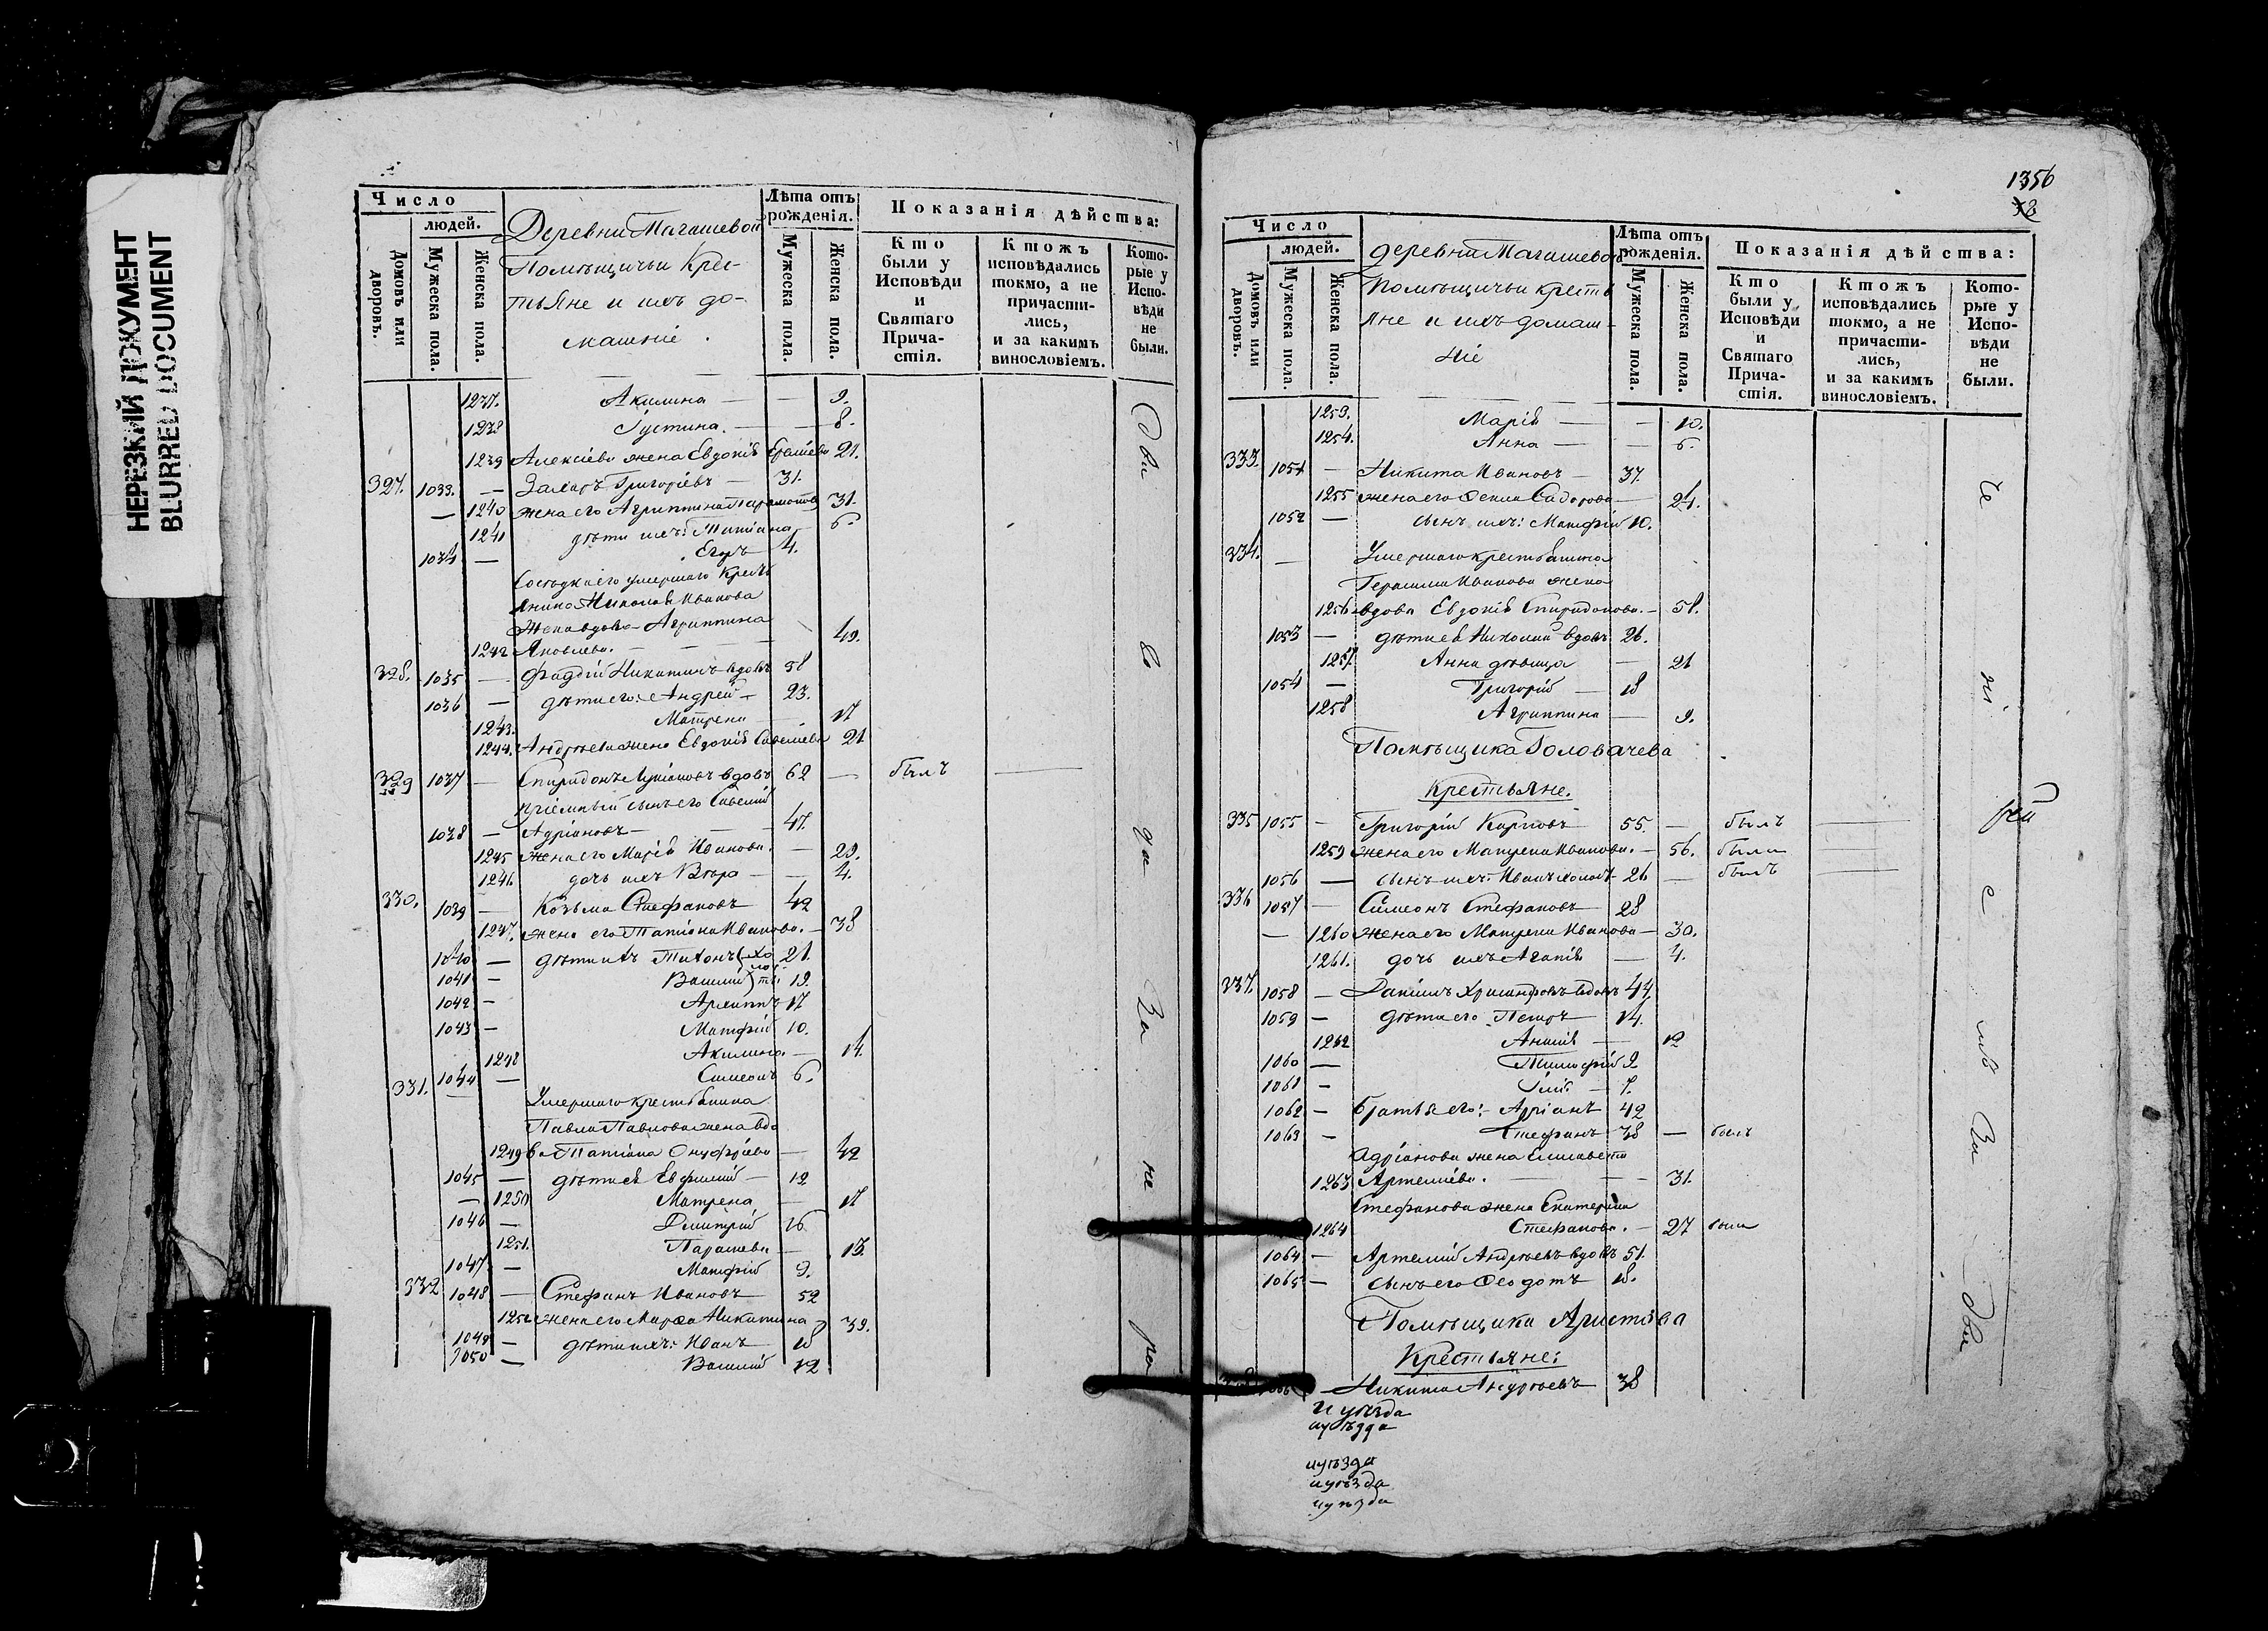 НЕРЕЗКИЙ ДОКУМЕНТ
BLURRED DOCUMENT
Число
людей.
Домовъ или дворовъ.
Мужеска пола.
Женска пола.
Деревни Магашевой
Помѣщичьи Крес-
тьяне и ихъ до-
машніе.
Лѣта отъ рожденія.
Мужеска пола.
Женска пола.
Показанія дѣйства:
Кто были у Исповѣди и Святаго Прича-стія.
Ктожъ исповѣдались токмо, а не причасти-лись, и за какимъ винословіемъ.
Кото-рые у Испо-вѣди не были.
1237. Акилина — — 9.
1238 Іустина. — — 8.
1239 Алексіева жена Евдокія 21.
327. 1033. — Захаръ Григоріевъ — 31.
— 1240 жена его Агриппина 31.
1241 дѣти ихъ: Татіана 6.
1034 — Егоръ 4.
умершаго Кресть
янина Николая Иванова
Жена вдова Агриппина
1242 Яковлева. — — — 49.
328. 1035 — Фаддій Никитинъ вдовъ 58
1036 — дѣти его: Андрей — 23.
1243. Матрена — 17
1244. Андреева жена Евдокія Савельева 21
329 1037 — Спиридонъ вдовъ 62 — былъ —
Пріемный сынъ его Савелій
1038 — Адріановъ — — 47.
1245 жена его Марія Иванова. — 29.
1246 дочь ихъ Вѣра — — 4.
330. 1039 — Козьма Стефановъ 42
1247. жена его Татіана Иванова. — 38
1040 — дѣти ихъ Тихонъ 21.
1041 — Василій 19.
1042 — Архиппъ 17
1043 — Матфій 10.
1248 Акилина — 14.
331. 1044 — Симеонъ 6.
Умершаго крестьянина
Павла Павлова жена вдо
1249 ва Татіана Онуфріева — 42
1045 — дѣти ея Евфимій — 19
— 1250 Матрена — 17
1046 — Дмитрій 16.
1251. Парасева — 13.
1047 — Матфій 9.
332 1048 — Стефанъ Ивановъ 52
1252 жена его Марѳа Никитина 39.
1049 — дѣти ихъ: Иванъ 18
1050 — Василій 12
1356
Число
людей.
Домовъ или дворовъ.
Мужеска пола.
Женска пола.
деревни Магашевой
Помѣщичьи кресть
яне и ихъ домаш-
ніе
Лѣта отъ рожденія.
Мужеска пола.
Женска пола.
Показанія дѣйства:
Кто были у Исповѣди и Святаго Прича-стія.
Ктожъ исповѣдались токмо, а не причасти-лись, и за какимъ винословіемъ.
Кото-рые у Испо-вѣди не были.
1253. Марія — — 10.
1254. Анна — — 6.
333. 1051 — Никита Ивановъ — 37.
1255 жена его Ѳекла Сидорова — 24.
1052 — сынъ ихъ: Матфій 10.
334. — Умершаго крестьянина
Герасима Иванова жена
1256 вдова Евдокія Спиридонова. — 58.
1053 — дѣти ея Николай вдовъ 26.
1257 Анна дѣвица — 21
1054 — Григорій — 18
1258 Агриппина — 9.
Помѣщика Головачева
Крестьяне.
335 1055 — Григорій Карповъ 55. — былъ —
1259 жена его Матрена Иванова. — 56. была —
1056 — сынъ ихъ: Иванъ холостъ 26 — былъ —
336 1057 — Симеонъ Стефановъ 28
— 1260 жена его Матрена Иванова — 30.
1261. дочь ихъ Агапія — 4.
337. 1058 — Даніилъ Хрисанфовъ вдовъ 44.
1059 — дѣти его Петръ 14.
1262 — 12
1060 — Тимофій 9
1061 — Илія — 7.
1062 — братья его: Адріанъ 42
1063 — Стефанъ 38 — былъ
Адріанова жена Елисавета
1263 Артеміева. — — 31.
Стефанова жена Екатерина
1264 Стефанова. — 27 была
1064 — Артемій Андреевъ вдовъ 51.
1065 — сынъ его Ѳеодотъ 18.
Помѣщика Аристова
Крестьяне:
— Никита Андреевъ 38
и уѣзда
и уѣзда
и уѣзда
и уѣзда
и уѣзда